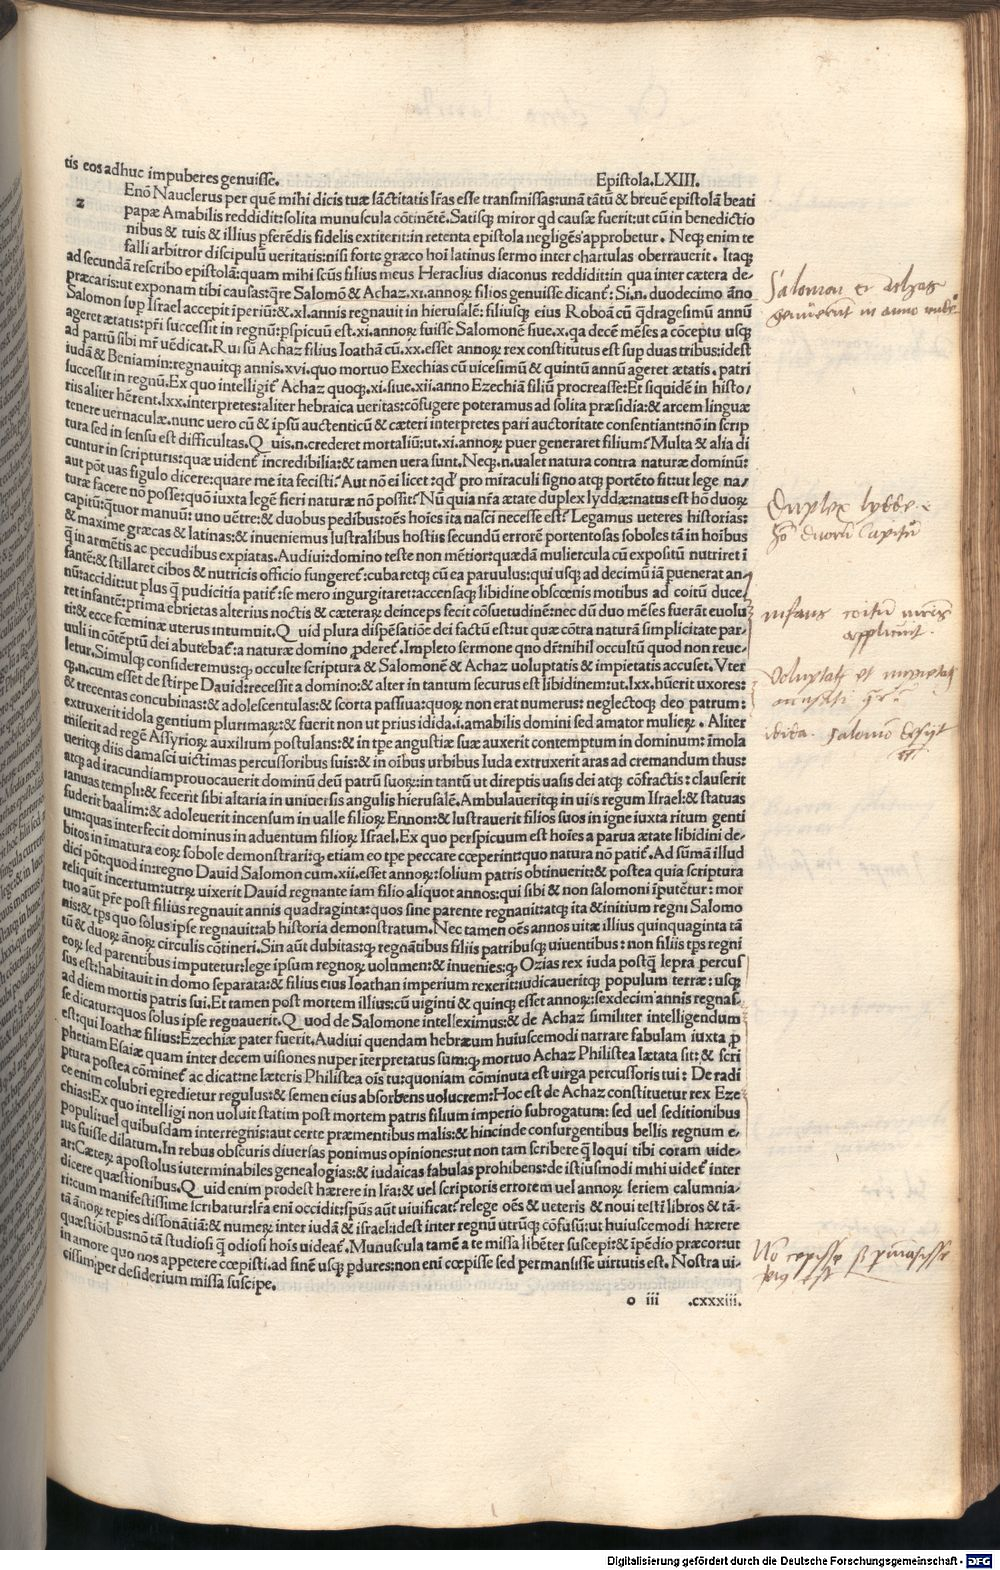 tis eos adhuc impuberes genuisse. Epistola.LXIII.
z Enō Nauclerus per quē mihi dicis tuæ sāctitatis lr̄as esse transmissas:unā tātū & breuē epistolā beati
papæ Amabilis reddidit:solita munuscula cōtinētē.Satisqȝ miror qd causæ fuerit:ut cū in benedictio
nibus & tuis & illius pferēdis fidelis extiterit:in retenta epistola negligēs approbetur. Neqȝ enim te
falli arbitror discipulū ueritatis:nisi forte græco hoī latinus sermo inter chartulas oberrauerit. Itaqȝ
ad secundā rescribo epistolā:quam mihi scūs filius meus Heraclius diaconus reddidit:in qua inter cætera de-
præcatis:ut exponam tibi causas:qre Salomō & Achaz.xi.annoꝝ filios genuisse dicant̄: Si.n. duodecimo āno
Salomon sup Israel accepit īperiū:&.xl.annis regnauit in hierusalē: filiusqȝ eius Roboā cū q̄dragesimū annū
ageret ætatis:pr̄i successit in regnū:pspicuū est.xi.annoꝝ fuisse Salomonē siue.x.qa decē mēses a cōceptu usqȝ
ad partū sibi mr̄ uēdicat.Rursū Achaz filius Ioathā cū.xx.esset annoꝝ rex constitutus est sup duas tribus:idest
iudā & Beniamin:regnauitqȝ annis.xvi.quo mortuo Exechias cū uicesimū & quintū annū ageret ætatis. patri
successit in regnū.Ex quo intelligit̄ Achaz quoqȝ.xi.siue.xii.anno Ezechiā filiū procreasse:Et siquidē in histo/
riis aliter hērent.lxx.interpretes:aliter hebraica ueritas:cōfugere poteramus ad solita præsidia:& arcem linguæ
tenere uernaculæ.nunc uero cū & ipsū auctenticū & cæteri interpretes pari auctoritate consentiant:nō in scrip
tura sed in sensu est difficultas.Quis.n.crederet mortaliū:ut.xi.annoꝝ puer generaret filium? Multa & alia di
cuntur in scripturis:quæ uident̄ incredibilia:& tamen uera sunt.Neqȝ.n.ualet natura contra naturæ dominū:
aut pōt uas figulo dicere:quare me ita fecisti? Aut nō ei licet:qd̄ pro miraculi signo atqȝ portēto fit:ut lege na/
turæ facere nō posse:quō iuxta legē fieri naturæ nō possit? Nū quia nr̄a ætate duplex lyddæ:natus est hō duoꝝ
capitū:q̄tuor manuū: uno uētre:& duobus pedibus:oēs hoīes ita nasci necesse est? Legamus ueteres historias:
& maxime græcas & latinas:& inueniemus lustralibus hostiis secundū errorē portentosas soboles tā in hoībus
q̄ in armētis ac pecudibus expiatas.Audiui:domino teste non mētior:quædā muliercula cū expositū nutriret ī
fantē:& stillaret cibos & nutricis officio fungeret̄:cubaretqȝ cū ea paruulus:qui usqȝ ad decimū iā puenerat an/
nū:accidit:ut plus q̄ pudicitia patit̄:se mero ingurgitaret:accensaqȝ libidine obscœnis motibus ad coitū duce/
ret infantē:prima ebrietas alterius noctis & cæteraꝝ deinceps fecit cōsuetudinē:nec dū duo mēses fuerāt euolu
ti:& ecce fœminæ uterus intumuit.Quid plura dispēsatiōe dei factū est:ut quæ cōtra naturā simplicitate par/
uuli in cōtēptū dei abutebat̄:a naturæ domino pderet̄.Impleto sermone qno dr̄:nihil occultū quod non reue-
letur.Simulqȝ consideremus:qȝ occulte scriptura & Salomonē & Achaz uoluptatis & impietatis accuset.Vter
qȝ.n.cum esset de stirpe Dauid:recessit a domino:& alter in tantum securus est libidinem:ut.lxx.hūerit uxores:
& trecentas concubinas:& adolescentulas:& scorta passiua:quoꝝ non erat numerus: neglectoqȝ deo patrum:
extruxerit idola gentium plurimaꝝ:& fuerit non ut prius idida.i.amabilis domini sed amator mulieꝝ. Aliter
miserit ad regē Assyrioꝝ auxilium postulans:& in tpe angustiæ suæ auxerit contemptum in dominum: īmola
ueritqȝ diis damasci uictimas percussoribus suis:& in oībus urbibus Iuda extruxerit aras ad cremandum thus:
atqȝ ad iracundiam prouocauerit dominū deū patrū suoꝝ:in tantū ut direptis uasis dei atqȝ cōfractis: clauserit
ianuas templi:& fecerit sibi altaria in uniuersis angulis hierusalē.Ambulaueritqȝ in uiis regum Israel:& statuas
fuderit baalim:& adoleuerit incensum in ualle filioꝝ Ennon:& lustrauerit filios suos in igne iuxta ritum genti
um:quas interfecit dominus in aduentum filioꝝ Israel.Ex quo perspicuum est hoīes a parua ætate libidini de-
bitos in īmatura eoꝝ sobole demonstrari:qȝ etiam eo tpe peccare cœperint:quo natura nō patit̄. Ad sūmā illud
dici pōt:quod in:regno Dauid Salomon cum.xii.esset annoꝝ:solium patris obtinuerit:& postea quia scriptura
reliquit incertum:utrȝ uixerit Dauid regnante iam filio aliquot annos:qui sibi & non salomoni īputētur: mor
tuo aūt pr̄e post filius regnauit annis quadraginta:quos sine parente regnauit:atqȝ ita & initium regni Salomo
nis:& tps quo solus ipse regnauit:ab historia demonstratum.Nec tamen oēs annos uitæ illius quinquaginta tā
tū & duoꝝ ānoꝝ circulis cōtineri.Sin aūt dubitas:qȝ regnātibus filiis patribusqȝ uiuentibus: non filiis tps regni
eoꝝ sed parentibus imputetur:lege ipsum regnoꝝ uolumen:& inuenies:qȝ Ozias rex iuda postq̄ lepra percus
sus est:habitauit in domo separata:& filius eius Ioathan imperium rexerit:iudicaueritqȝ populum terræ: usqȝ
ad diem mortis patris sui.Et tamen post mortem illius:cū uiginti & quinqȝ esset annoꝝ:sexdecim annis regnas
se dicatur:quos solus ipse regnauerit.Quod de Salomone intelleximus:& de Achaz similiter intelligendum
est:qui Ioathæ filius:Ezechiæ pater fuerit.Audiui quendam hebræum huiuscemodi narrare fabulam iuxta p
phetiam Esaiæ quam inter decem uisiones nuper īterpretatus sum:qȝ mortuo Achaz Philistea lætata sit: & scri
ptura postea cōminet̄ ac dicat:ne læteris Philistea oīs tu:quoniam cōminuta est uirga percussoris tui: De radi
ce enim colubri egredietur regulus:& semen eius absorbens uolucrem:Hoc est de Achaz constituetur rex Eze
chias:Ex quo intelligi non uoluit statim post mortem patris filium imperio subrogatum: sed uel seditionibus
populi:uel quibusdam interregnis:aut certe præmentibus malis:& hincinde consurgentibus bellis regnum e-
ius fuisse dilatum.In rebus obscuris diuersas ponimus opiniones:ut non tam scribere q̄ loqui tibi coram uide-
ar:Cæteꝝ apostolus iuterminabiles genealogias:& iudaicas fabulas prohibens:de istiusmodi mihi uidet̄ inter
dicere quæstionibus.Quid enim prodest hærere in lr̄a:& uel scriptoris errorem uel annoꝝ seriem calumnia-
ri:cum manifestissime scribatur:lr̄a eni occidit:spūs aūt uiuificat? relege oēs & ueteris & noui testī libros & tā-
tā ānoꝝ repies dissonātiā:& numeꝝ inter iudā & israel:idest inter regnū utrūqȝ cōfusū:ut huiuscemodi hærere
quæstiōibus:nō tā studiosi q̄ odiosi hoīs uideat̄.Munuscula tamē a te missa libēter suscepi:& īpēdio præcor:ut
in amore quo nos appetere cœpisti:ad finē usqȝ pdures:non eni cœpisse sed permansisse uirtutis est. Nostra ui-
cissim:per desiderium missa suscipe.
o iii .cxxxiii.
Salomon et Achas
genuerunt in anno
Duplex lydde
hō duorū capitū
infans coitū
applicuit.
Voluptatis et impietatis
idida. Salomō
Nō cepisse sꝫ pmāsisse
est
Digitalisierung gefördert durch die Deutsche Forschungsgemeinschaft - DFG